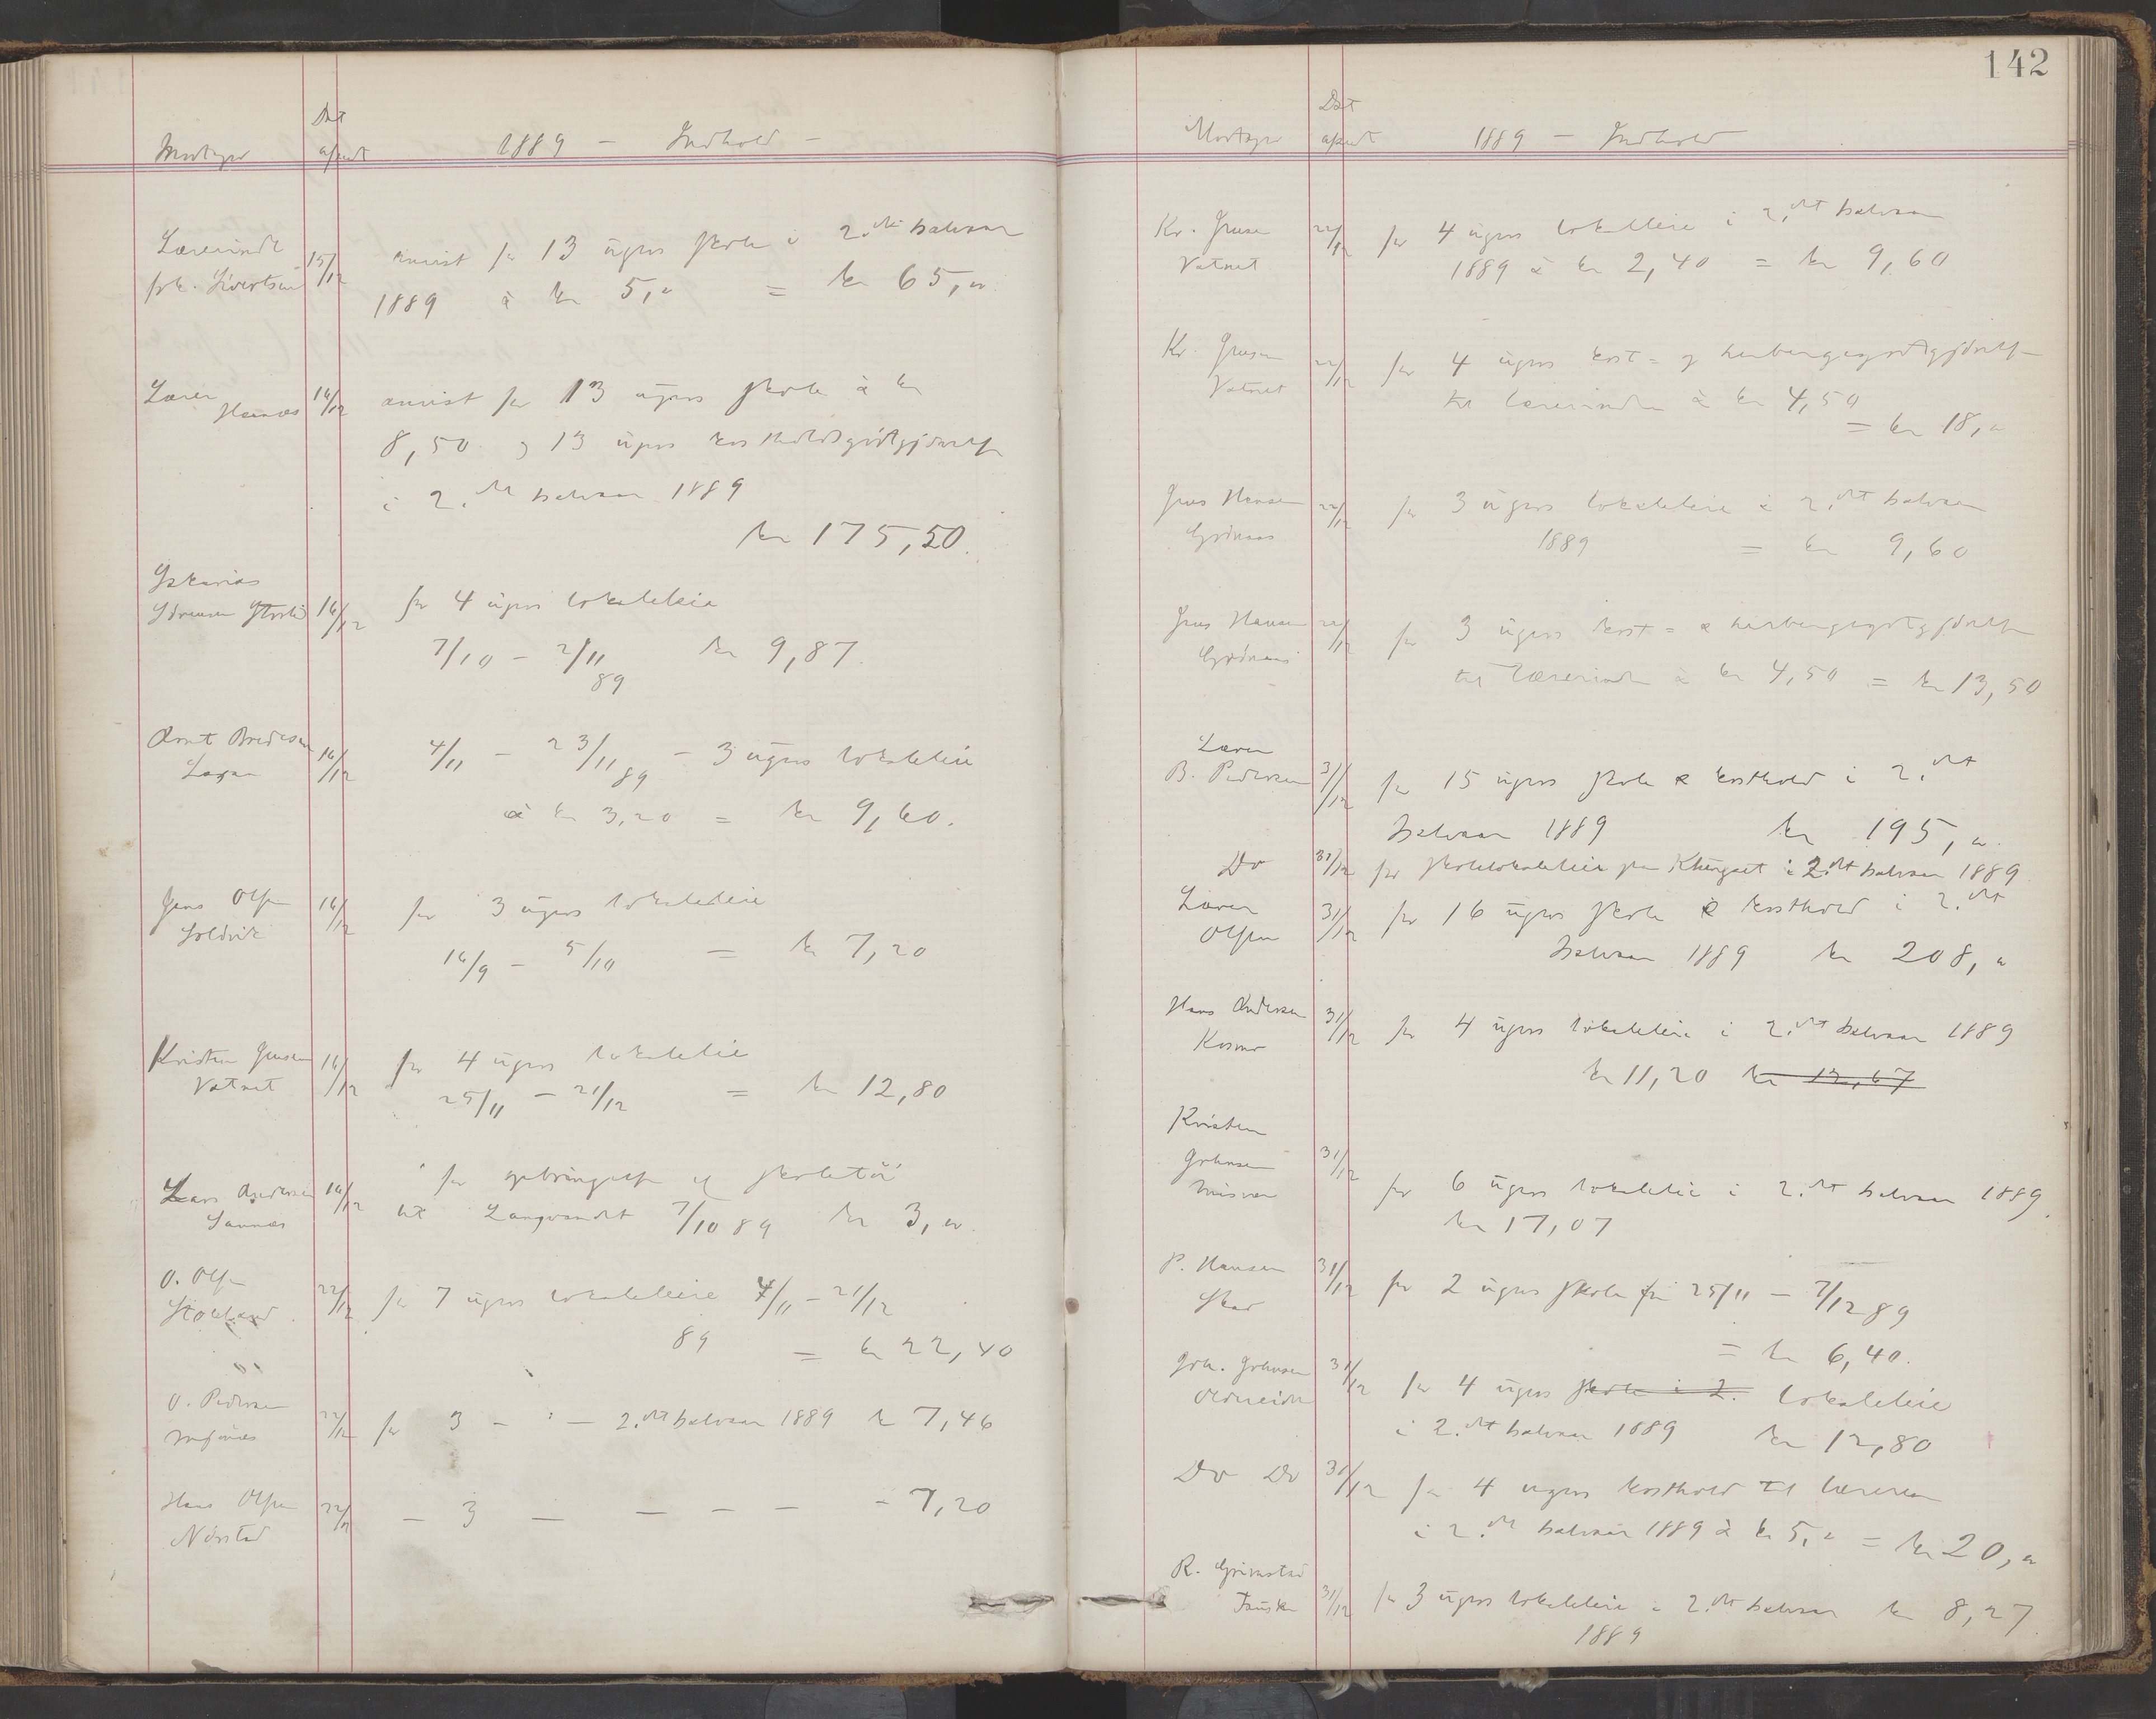 Dat
Modtager afsendt 1889 - Indhold -
Lærerinde
frk. Sivertsen 15/12 anvist for 13 ugers skole i 2.det halvaar
1889 à kr 5,00 = kr 65,00
Lærer
Hamnes 16/12 anvist for 13 ugers skole à kr
8,50 og 13 ugers kostholdsgodtgjørelse
i 2.det halvaar 1889
kr 175,50.
Zakarias
Sørensen 16/12 for 4 ugers lokalleie
7/10 - 2/11 89 kr 9,87.
Arnt Bredesen 16/12 4/11 - 23/11 89 - 3 ugers lokalleie
à kr 3,20 = kr 9,60.
Jens Olsen 16/12 for 3 ugers lokalleie
Soldvik
16/9 - 5/10 = kr 7,20
Kristen Jensen 16/12 for 4 ugers lokalleie
Vatnet 25/11 - 21/12 = kr 12,80
Lars Andersen 16/12 for opbringelse af skoletøi
Sannes til Langvandet 7/10 89 kr 3,00.
O. Olsen
Stokland 22/12 for 7 ugers lokalleie 4/11 - 21/12
89 = kr 22,40
O. Pedersen
Mefjønes 22/12 for 3 - : - 2.det halvaar 1889 kr 7,46
Hans Olsen 22/12 - 3 - - - - - 7,20
Nørstad
142
Dat
Modtager afsendt 1889 - Indhold
Kr. Jensen 22/12 for 4 ugers lokalleie i 2.det halvaar
Vatnet 1889 à kr 2,40 = kr 9,60
Kr. Jensen 22/12 for 4 ugers kost= og herbergegodtgjørelse
Vatnet til lærerinden à kr 4,50
= kr 18,00
Jens Hansen 22/12 for 3 ugers lokalleie i 2.det halvaar
Gjønnes 1889 = kr 9,60
Jens Hansen 22/12 for 3 ugers kost= & herbergegodtgjørelse
Gjønnes til lærerinden à kr 4,50 = kr 13,50
Lærer
B. Pedersen 31/12 for 15 ugers skole & kosthold i 2.det
halvaar 1889 kr 195,00.
Do 31/12 for skolelokalleie paa Klungset i 2.det halvaar 1889
Lærer
Olsen 31/12 for 16 ugers skole & kosthold i 2.det
halvaar 1889 kr 208,00
Hans Andersen 31/12 for 4 ugers lokalleie i 2.det halvaar 1889
Kosmo kr 11,20 kr 12,67
Kristen
Johnsen 31/12
for 6 ugers lokalleie i 2.det halvaar 1889.
kr 17,07
P. Hansen 31/12 for 2 ugers skole fra 25/11 - 7/12 89
Skar
= kr 6,40.
Joh. Johnsen 31/12 for 4 ugers skole i 2. lokalleie
Oldereide i 2.det halvaar 1889 kr 12,80
Do Do 31/12 for 4 ugers kosthold til læreren
i 2.det halvaar 1889 à kr 5,00 = kr 20,00
R. Grimstad
Fauske 31/12 for 3 ugers lokalleie i 2.det halvaar kr 8,27.
1889